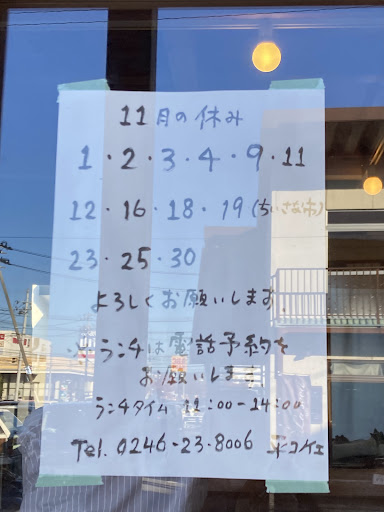 11月の休み
1・2・3・4・9・11
12・16・18・19(ちいさな市)
23・25・30
よろしくお願いします。
ランチは電話予約を
お願いします
ランチタイム 12:00-14:00
Tel. 0246-23-8006